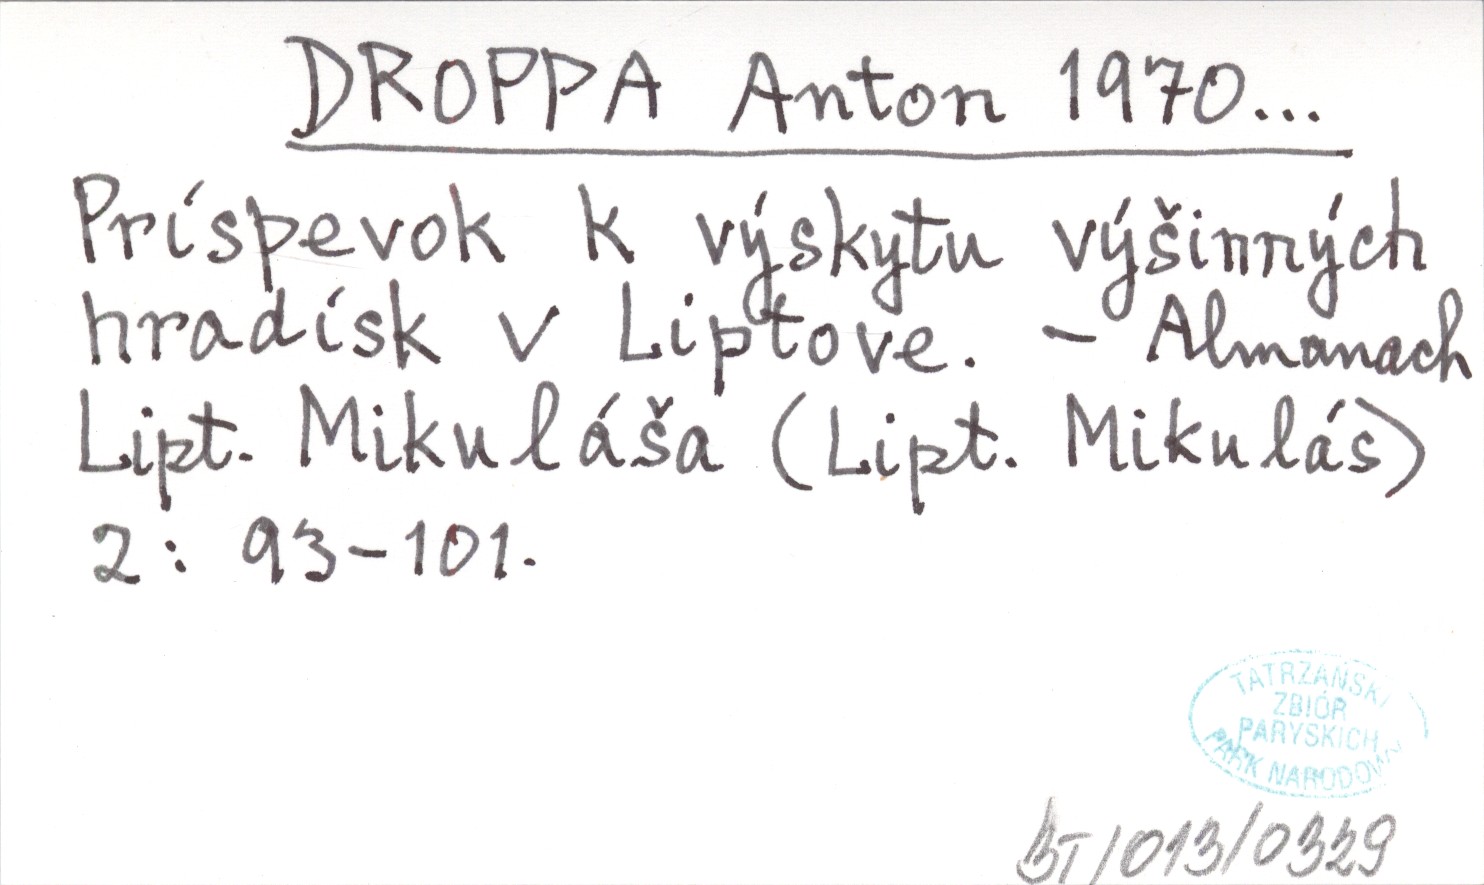 DROPPA Anton 1970...
Príspevok k výskytu výšinných
hradísk v Liptove. - Almanach
Lipt. Mikuláša (Lipt. Mikulás)
2: 93-101.
TATRZAŃSKI
ZBIÓR
PARYSKICH
PARK NARODOWY
BT/013/0329